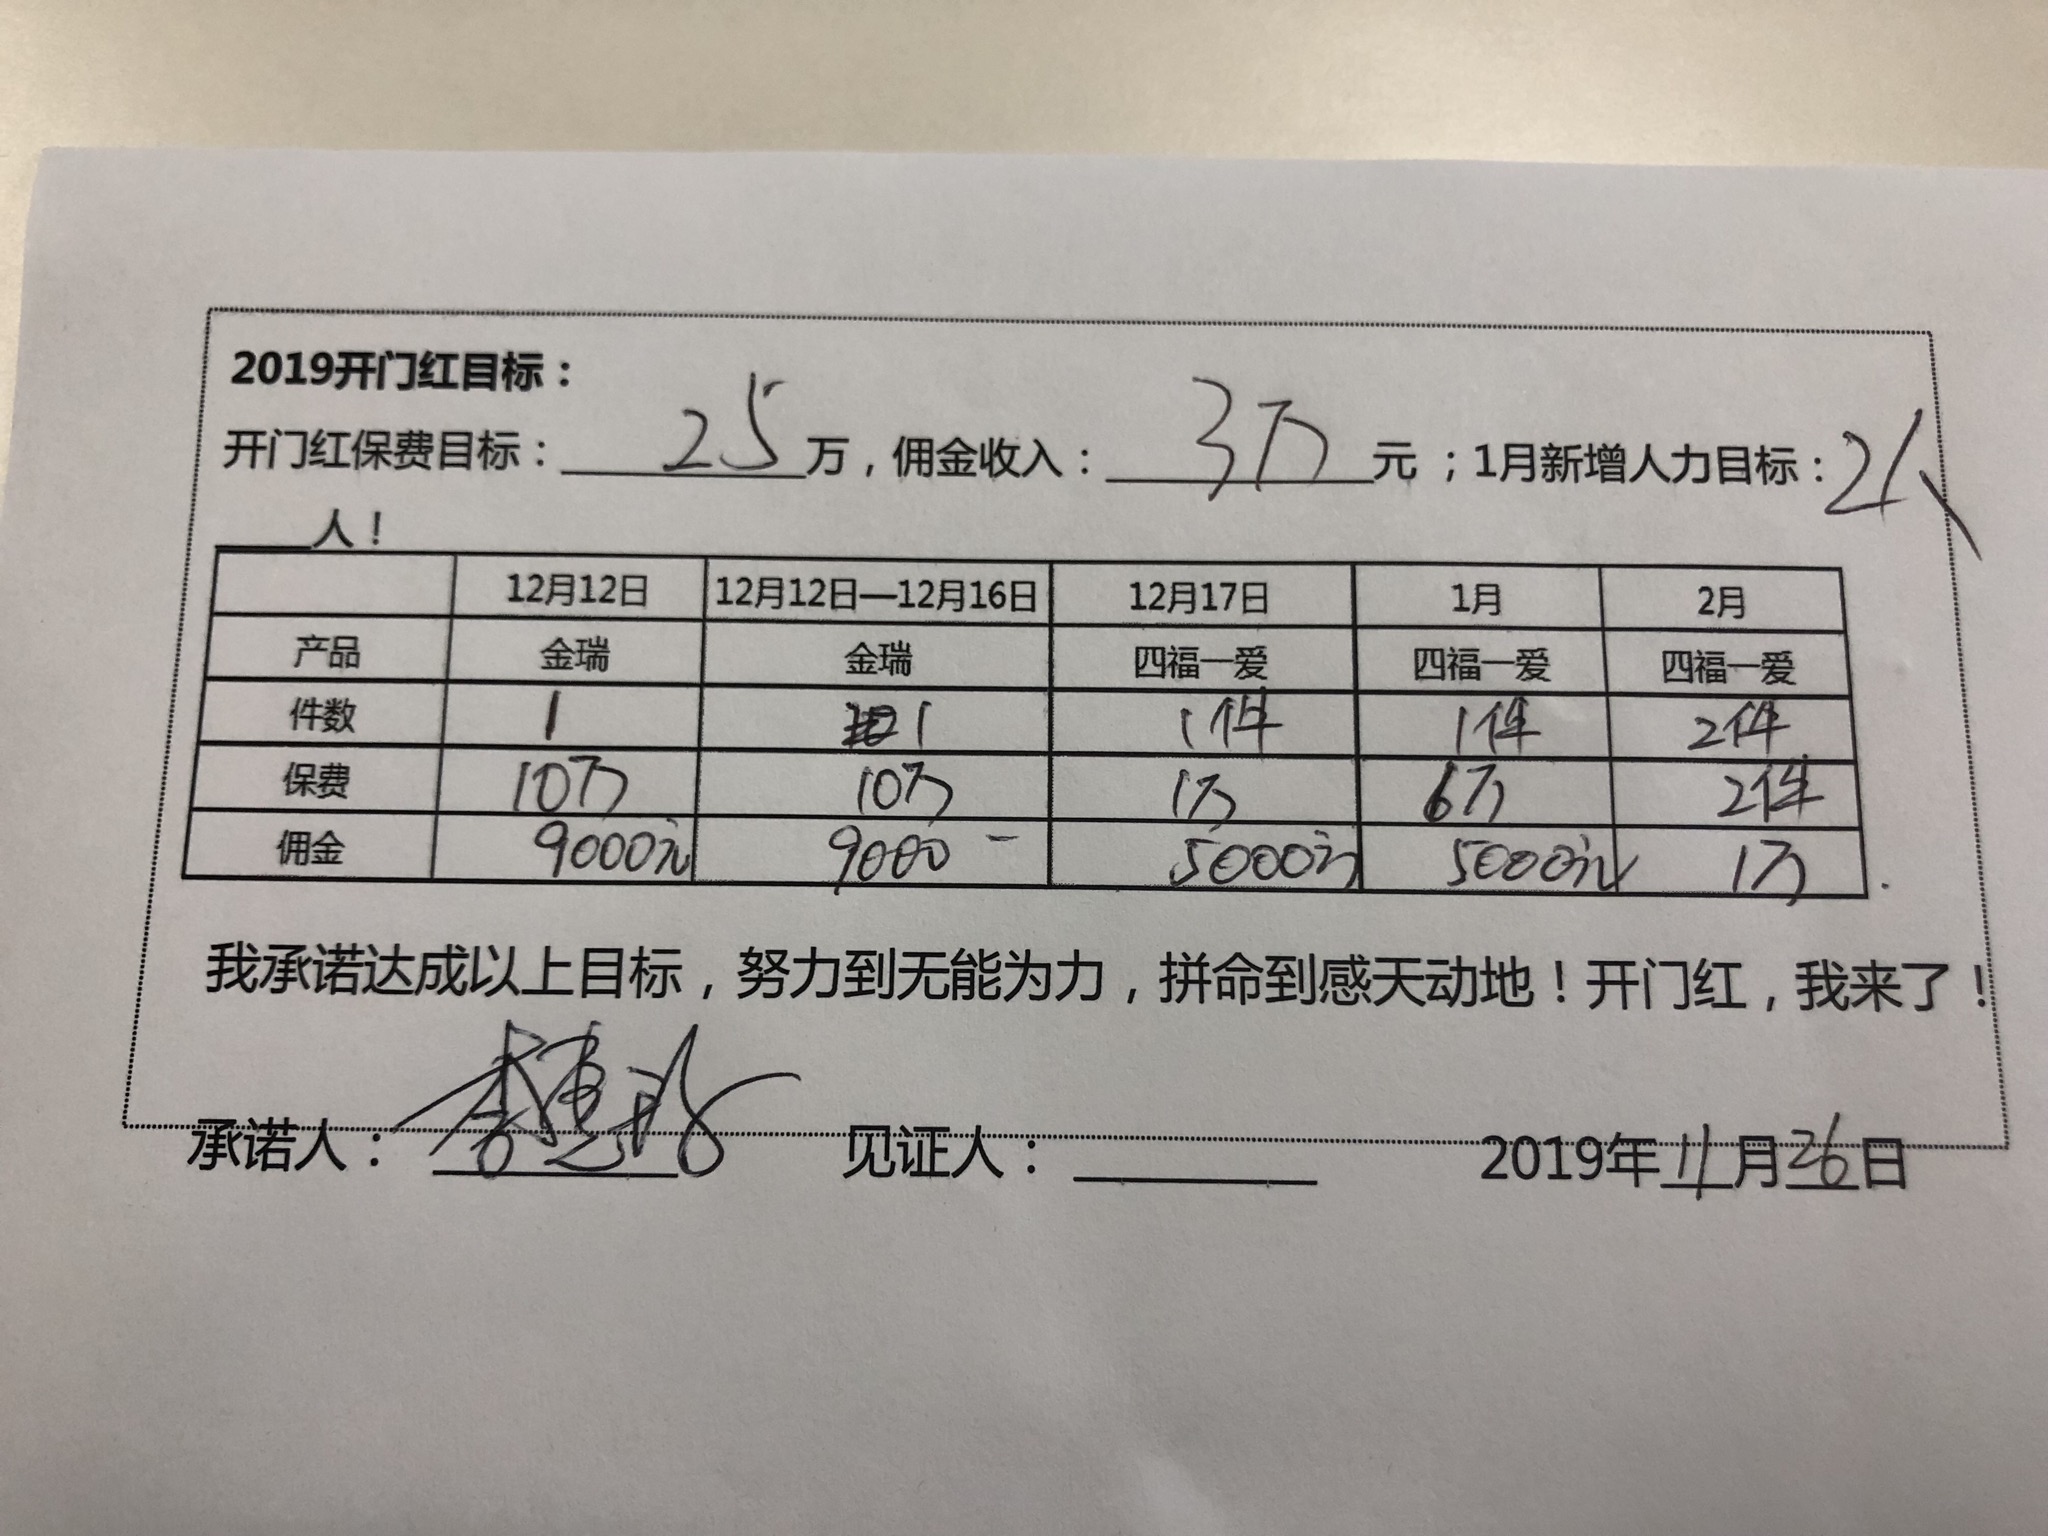 2019开门红目标：
开门红保费目标：25万，佣金收入：3万元；1月新增人力目标：2人
人！
12月12日 12月12日—12月16日 12月17日 1月 2月
产品 金瑞 金瑞 四福一爱 四福一爱 四福一爱
件数 1 1 1件 1件 2件
保费 10万 10万 1万 6万 2件
佣金 9000元 9000 - 5000元 5000元 1万
我承诺达成以上目标，努力到无能为力，拼命到感天动地！开门红，我来了！
承诺人： 见证人： 2019年11月26日